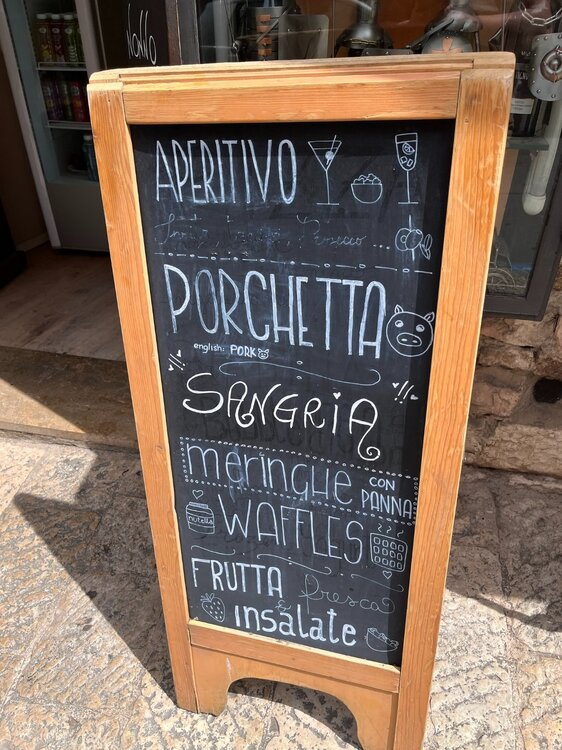 Nonno
APERITIVO
Prosecco ...
PORCHETTA
english: PORK
SANGRIA
meringhe CON
PANNA
nutella
WAFFLES
FRUTTA fresca
& insalate